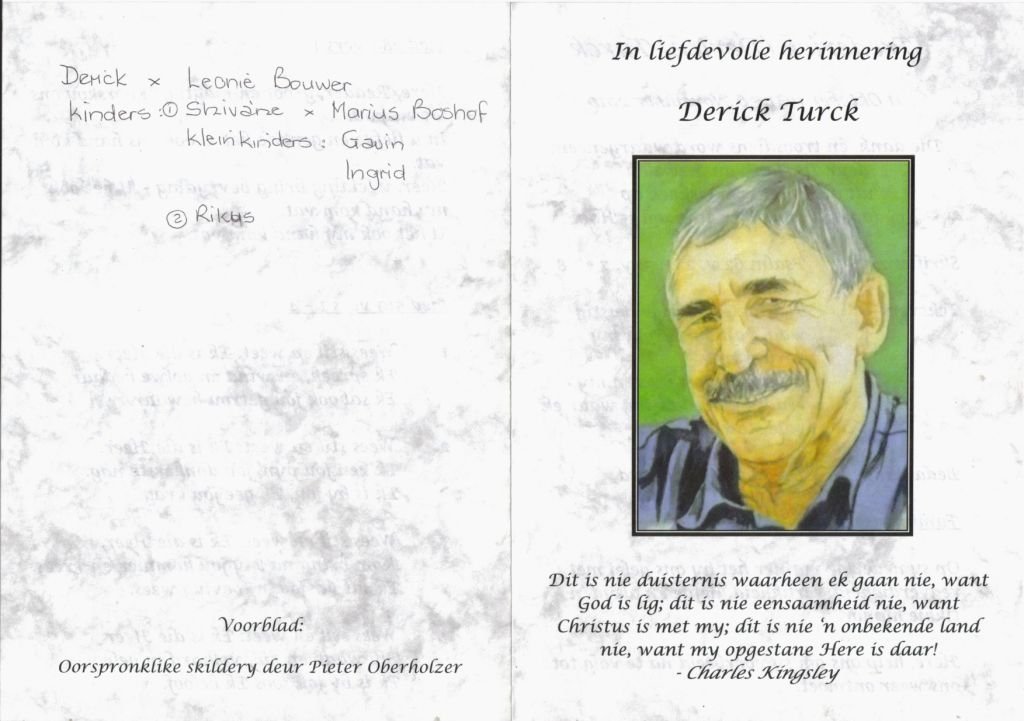 Derick x Leonie Bouwer
kinders: ① Shivàne x Marius Boshof
kleinkinders: Gavin
Ingrid
② Rikus
Voorblad:
Oorspronklike skildery deur Pieter Oberholzer
In liefdevolle herinnering
Derick Turck
Dit is nie duisternis waarheen ek gaan nie, want
God is lig; dit is nie eensaamheid nie, want
Christus is met my; dit is nie ‘n onbekende land
nie, want my opgestane Here is daar!
- Charles Kingsley